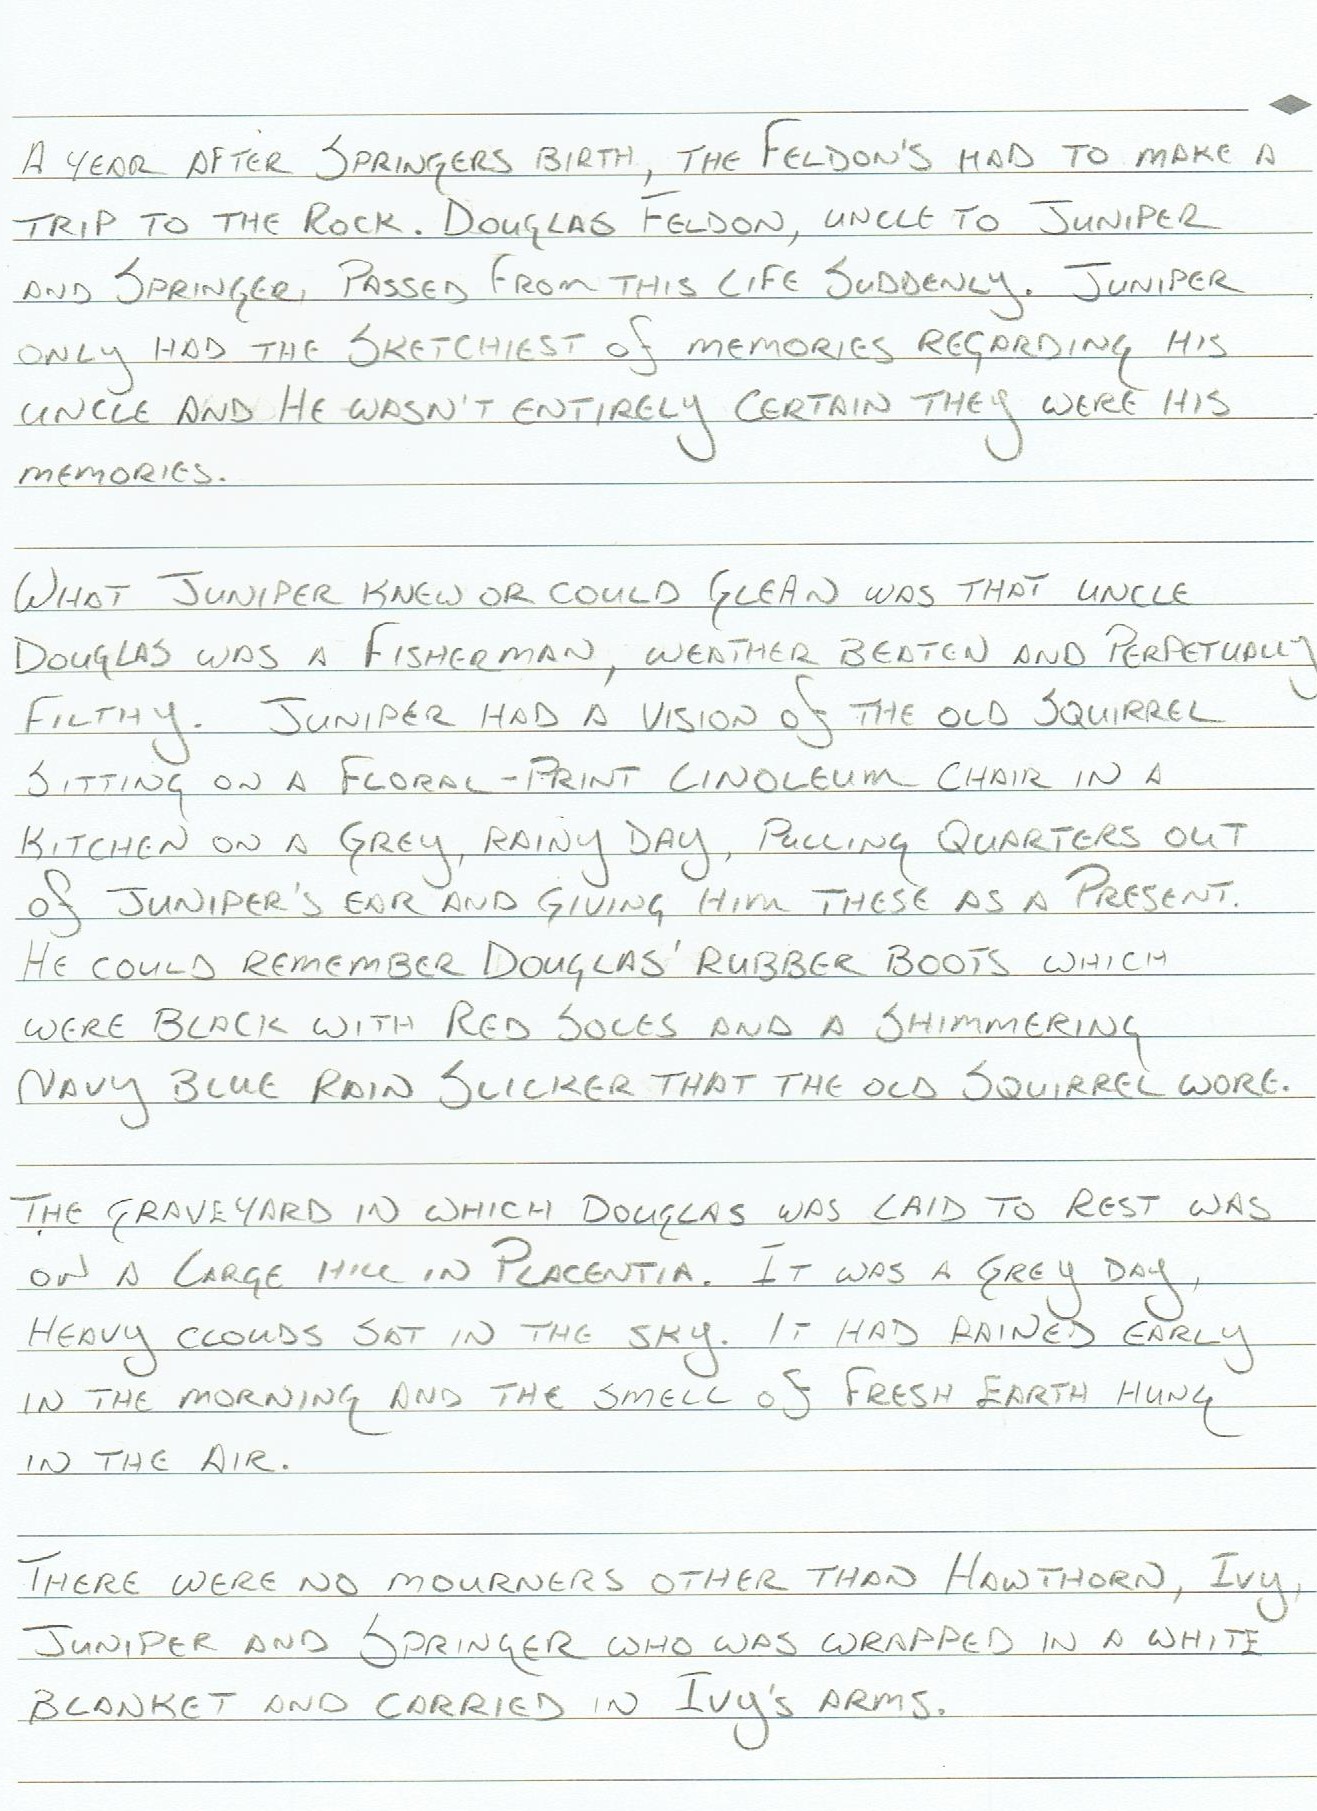 A YEAR AFTER SPRINGERS BIRTH, THE FELDON'S HAD TO MAKE A
TRIP TO THE ROCK. DOUGLAS FELDON, UNCLE TO JUNIPER
AND SPRINGER, PASSED FROM THIS LIFE SUDDENLY. JUNIPER
ONLY HAD THE SKETCHIEST of MEMORIES REGARDING HIS
UNCLE AND HE WASN'T ENTIRELY CERTAIN THEY WERE HIS
MEMORIES.
WHAT JUNIPER KNEW OR COULD GLEAN WAS THAT UNCLE
DOUGLAS WAS A FISHERMAN, WEATHER BEATEN AND PERPETUALLY
FILTHY. JUNIPER HAD A VISION of THE OLD SQUIRREL
SITTING ON A FLORAL-PRINT LINOLEUM CHAIR IN A
KITCHEN ON A GREY, RAINY DAY, PULLING QUARTERS OUT
of JUNIPER'S EAR AND GIVING HIM THESE AS A PRESENT.
HE COULD REMEMBER DOUGLAS' RUBBER BOOTS WHICH
WERE BLACK WITH RED SOLES AND A SHIMMERING
NAVY BLUE RAIN SLICKER THAT THE OLD SQUIRREL WORE.
THE GRAVEYARD IN WHICH DOUGLAS WAS LAID TO REST WAS
ON A LARGE HILL IN PLACENTIA. IT WAS A GREY DAY,
HEAVY CLOUDS SAT IN THE SKY. IT HAD RAINED EARLY
IN THE MORNING AND THE SMELL of FRESH EARTH HUNG
IN THE AIR.
THERE WERE NO MOURNERS OTHER THAN HAWTHORN, IVY,
JUNIPER AND SPRINGER WHO WAS WRAPPED IN A WHITE
BLANKET AND CARRIED IN IVY'S ARMS.